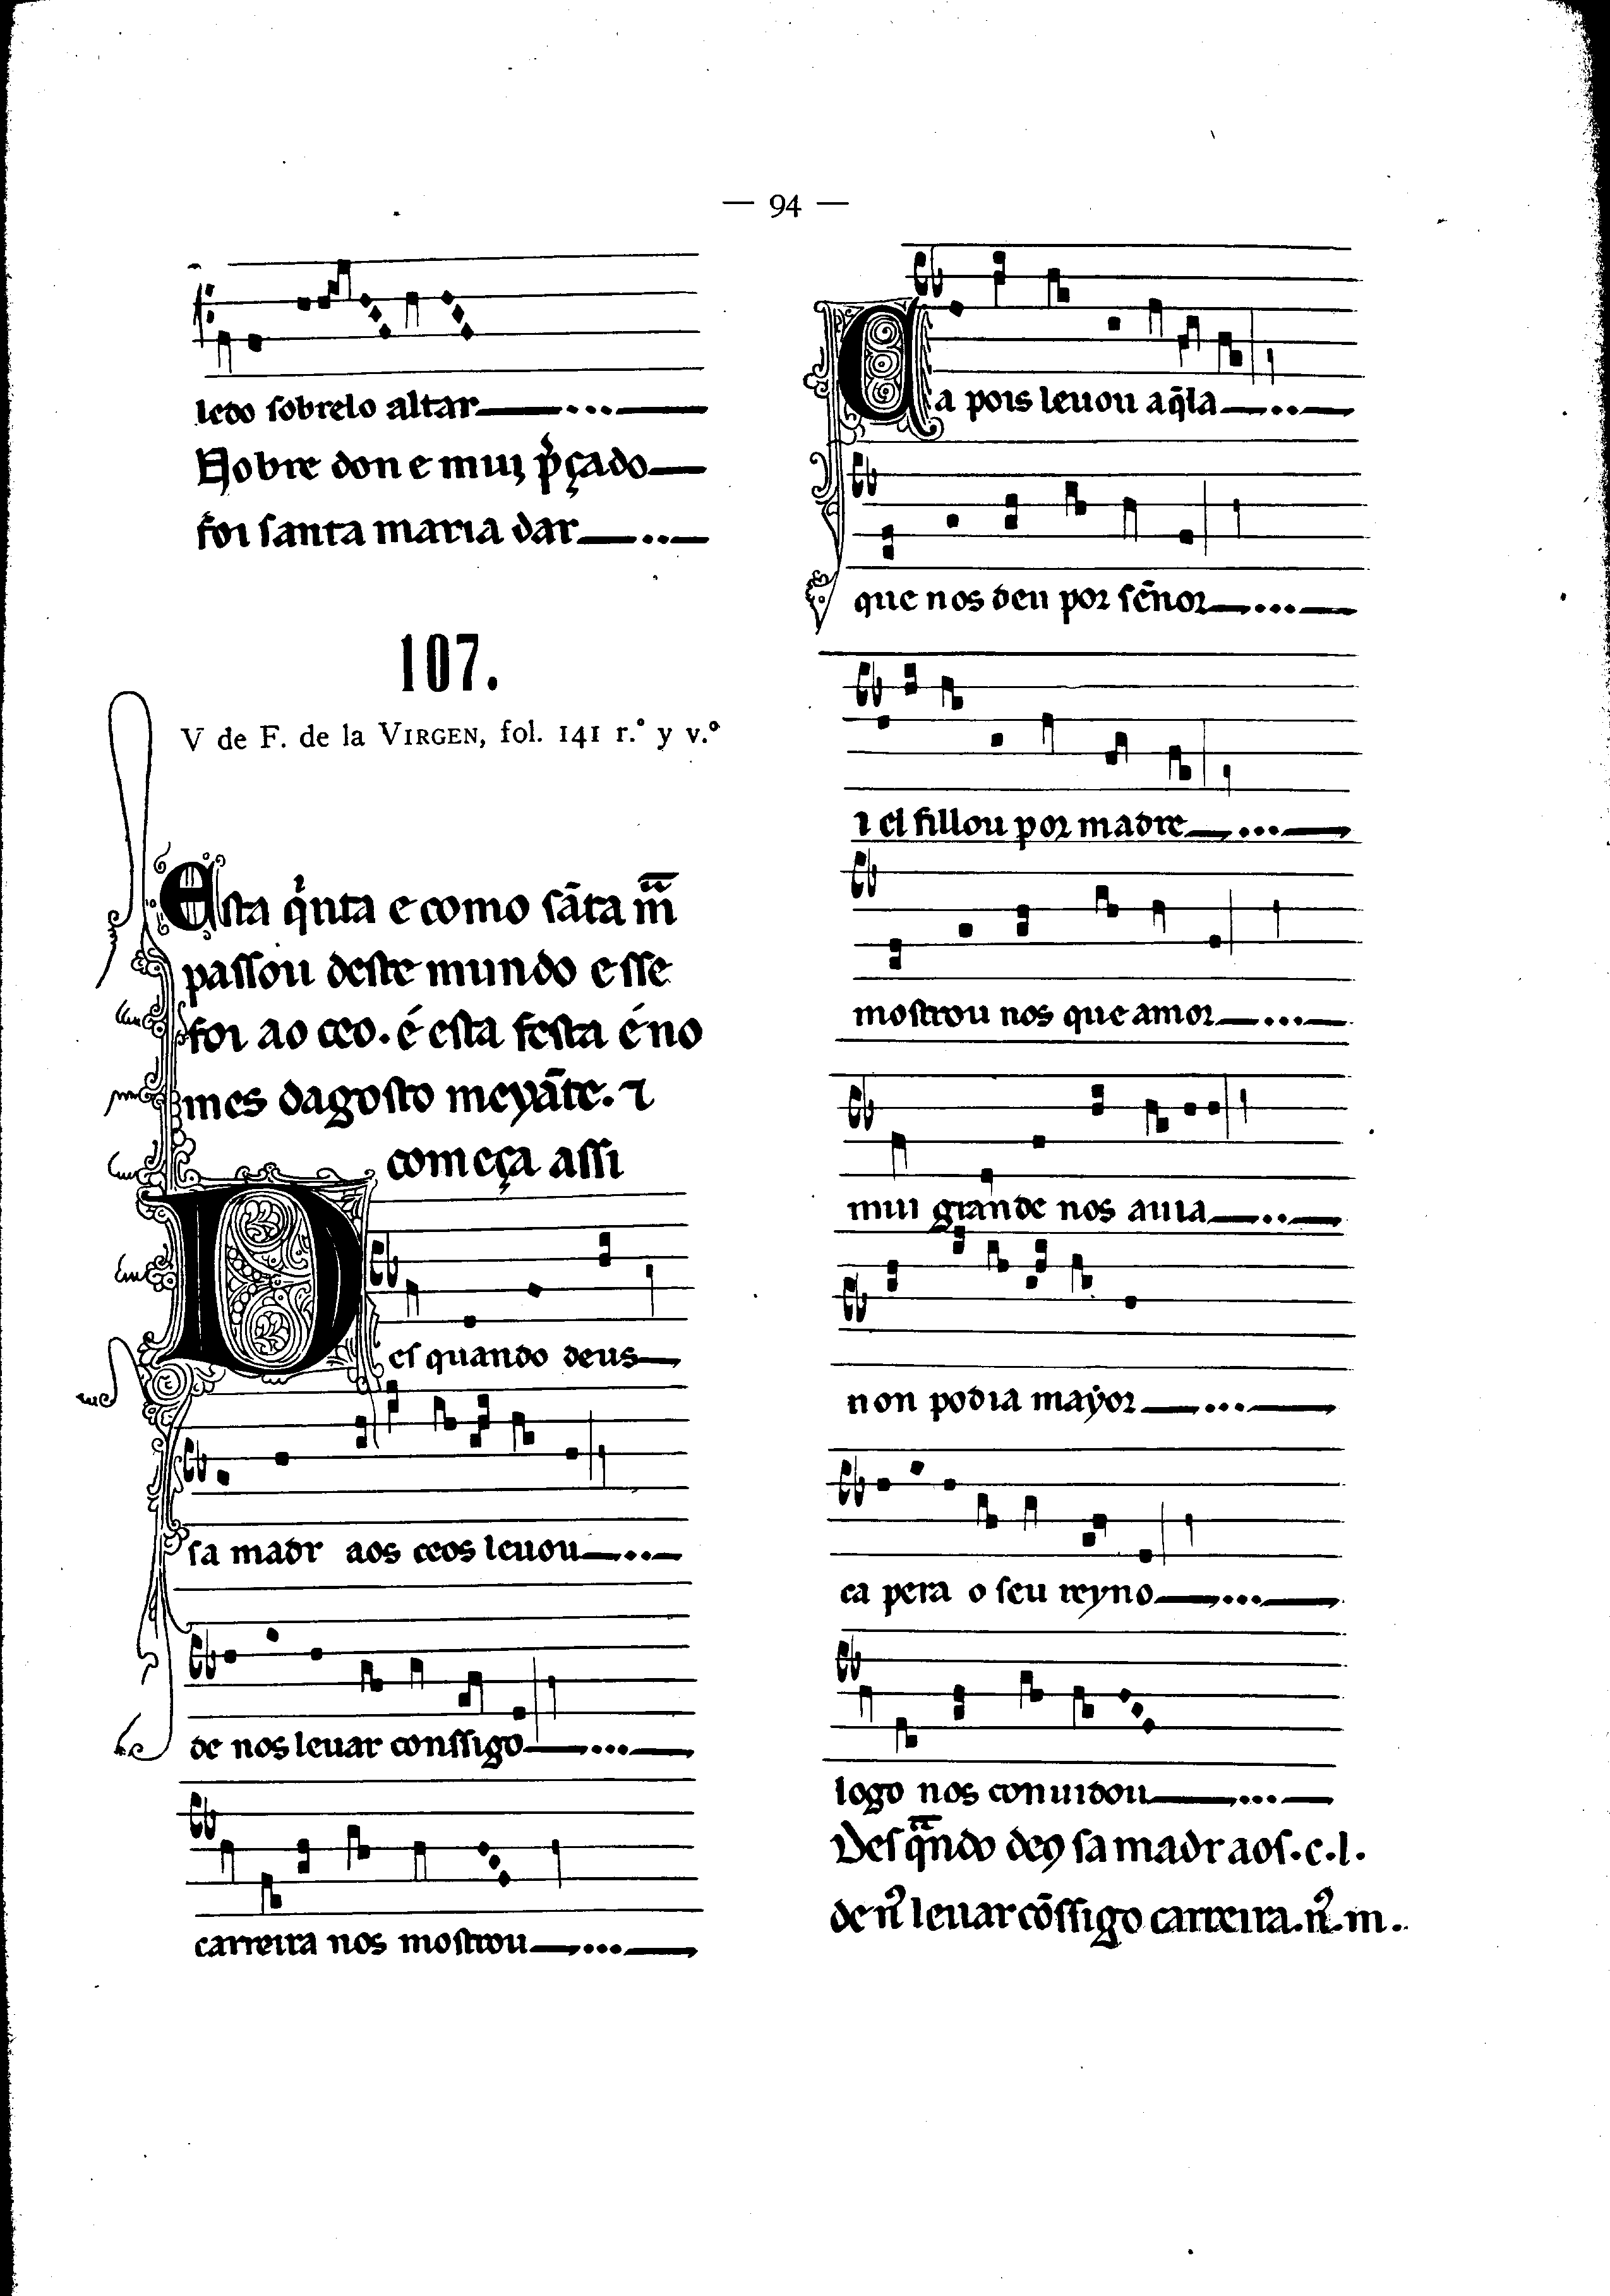 — 94 —
ledo sobrelo altar
Nobre don e mui p̃çado
foi santa maria dar
107.
V de F. de la VIRGEN, fol. 141 r.º y v.º
Esta q̍nta e como sãta m̃
passou deste mundo e sse
foi ao ceo. é esta festa é no
mes dagosto meyãte. ⁊
começa assi
Des quando deus
sa madr aos ceos leuou
de nos leuar conssigo
carreira nos mostrou
Ca pois leuou aq̃la
que nos deu por sẽnor
⁊ el fillou por madre
mostrou nos que amor
mui grande nos auia
non podia mayor
ca pera o seu reyno
logo nos conuidou
Des q̃ndo deꝯ sa madr aos.c.l.
de nꝯ leuar cõssigo carreira.nꝯ.m.